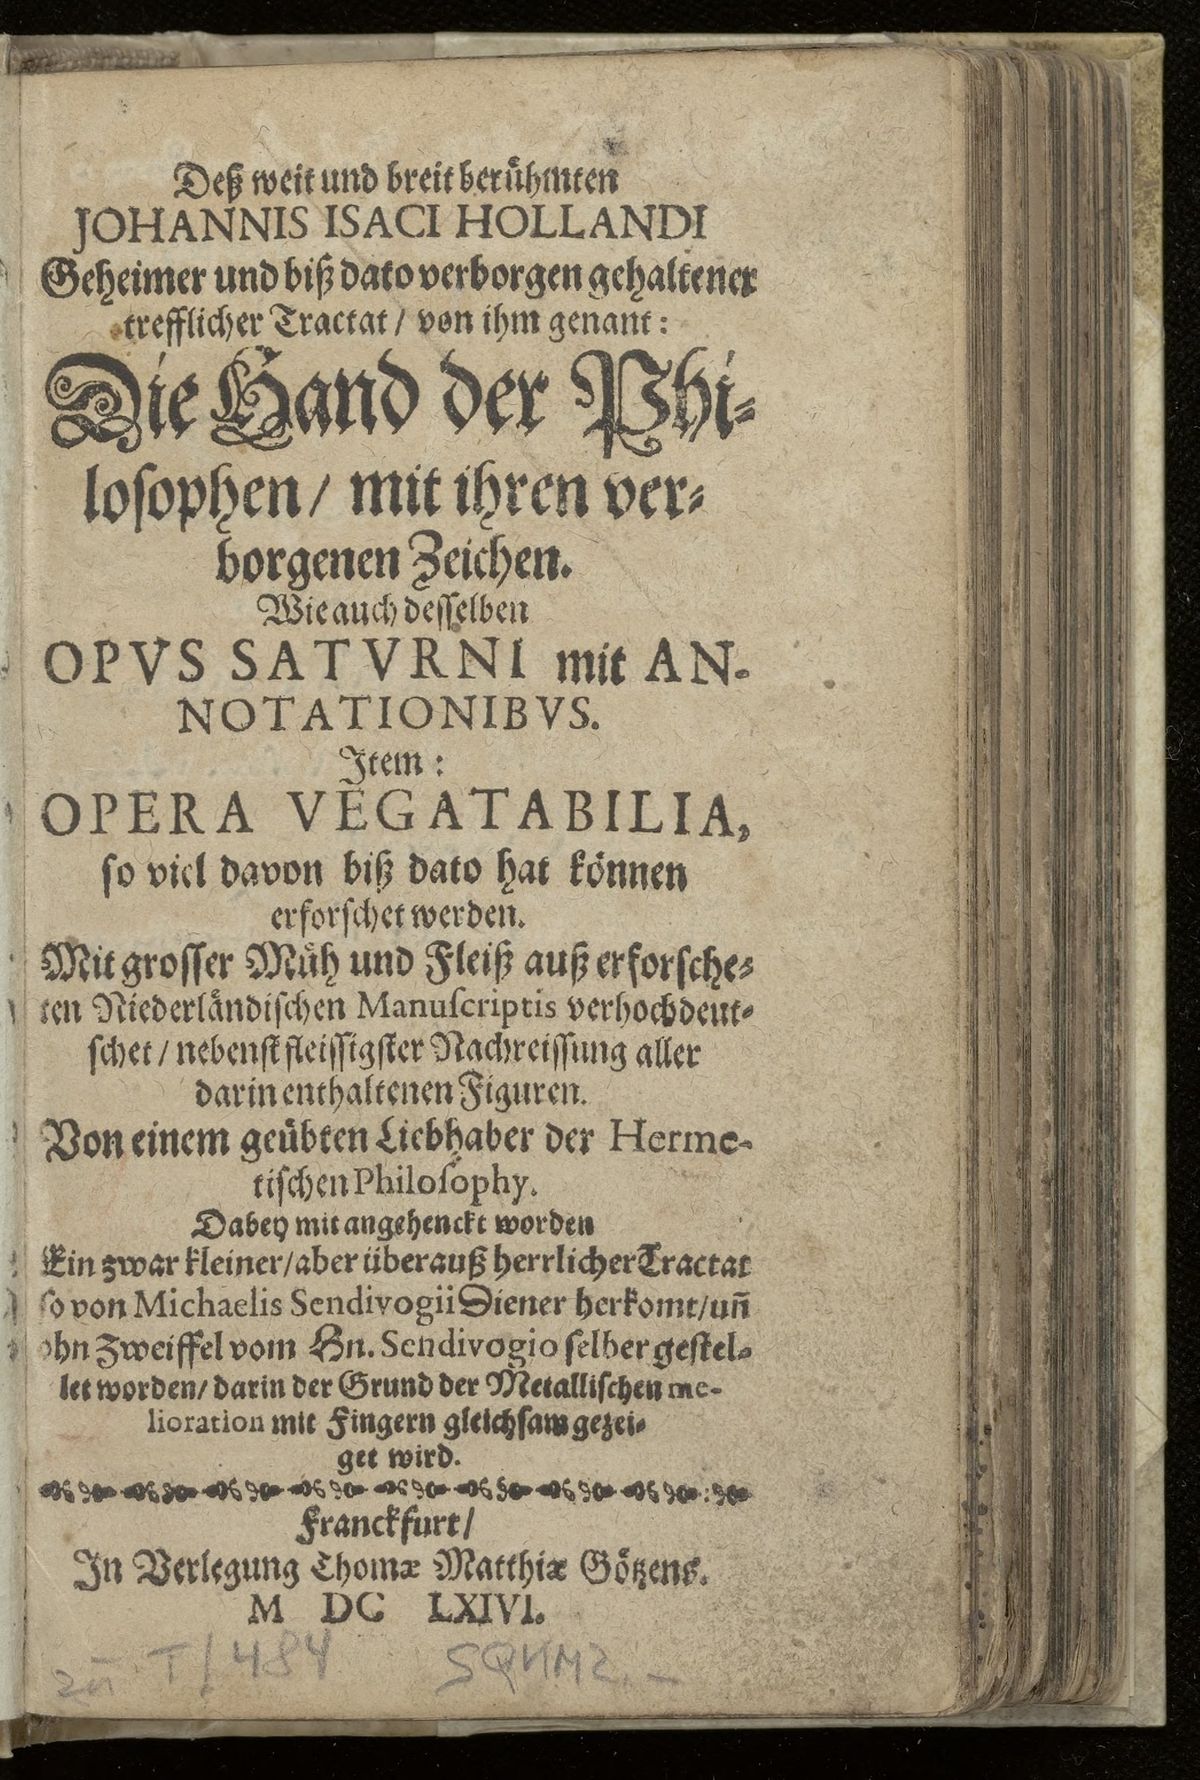 Deß weit und breit berühmten
JOHANNIS ISACI HOLLANDI
Geheimer und biß dato verborgen gehaltener
trefflicher Tractat / von ihm genant:
Die Hand der Phi-
losophen / mit ihren ver-
borgenen Zeichen.
Wie auch desselben
OPVS SATVRNI mit AN-
NOTATIONIBVS.
Item:
OPERA VEGATABILIA,
so viel davon biß dato hat können
erforschet werden.
Mit grosser Müh und Fleiß auß erforsche-
ten Niederländischen Manuscriptis verhochdeut-
schet / nebenst fleissigster Nachreissung aller
darin enthaltenen Figuren.
Von einem geübten Liebhaber der Herme-
tischen Philosophy.
Dabey mit angehenckt worden
Ein zwar kleiner / aber überauß herrlicher Tractat
so von Michaelis Sendivogii Diener herkomt / uñ
ohn Zweiffel vom Hn. Sendivogio selber gestel-
let worden / darin der Grund der Metallischen me-
lioration mit Fingern gleichsam gezei-
get wird.
Franckfurt /
In Verlegung Thomæ Matthiæ Götzens.
M DC LXIVI.
T/484